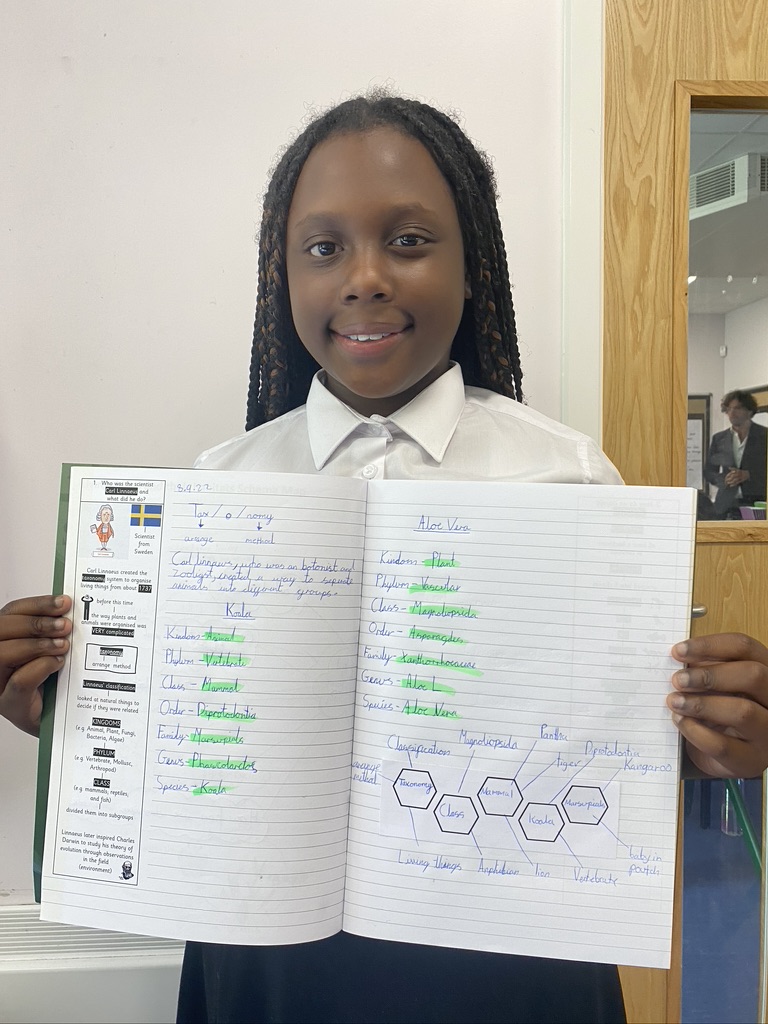 1. Who was the scientist
Carl Linnaeus and
what did he do?
Scientist
from
Sweden.
Carl Linnaeus created the
taxonomy system to organise
living things from about 1737
before this time
the way plants and
animals were organised was
VERY complicated
taxonomy
arrange method
Linnaeus' classification
looked at natural things to
decide if they were related
KINGDOMS
(e.g. Animal, Plant, Fungi,
Bacteria, Algae)
PHYLUM
(e.g. Vertebrate, Mollusc,
Arthropod)
CLASS
(e.g. mammals, reptiles,
and fish)
divided them into subgroups
Linnaeus later inspired Charles
Darwin to study his theory of
evolution through observations
in the field
(environment)
Tax / o / nomy
arange method
Carl linnaus, who was an botonist and
Zoologist, created a way to seperate
animals into different groups.
Koala
Kindom - Animal
Phylum - Vertibrate
Class - Mammal
Order - Diprotodontia
Family - Marsupials
Genus - Phascolarctos
Species - Koala
Aloe Vera
Kindom - Plant
Phylum - Vascular
Class - Magnoliopsida
Order - Asparagales
Family -
Genus - Aloe L
Species - Aloe Vera
Classification
Magnoliopsida
Pantha
tiger
Diprotodontia
Kangaroo
arrange
method
Taxonomy
Class
Mammal
Koala
Marsupials
Living things
Amphibian
lion
Vertebrate
baby in
pouch